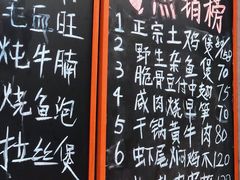 毛血旺
炖牛腩
烧鱼泡
拉丝煲
热销榜
1 正宗土鸡煲
2 野生杂鱼 90
3 脆骨豆付中煲
4 咸肉烧早笋 70
5 干锅黄牛肉 80
6 虾尾焖鸡爪 120